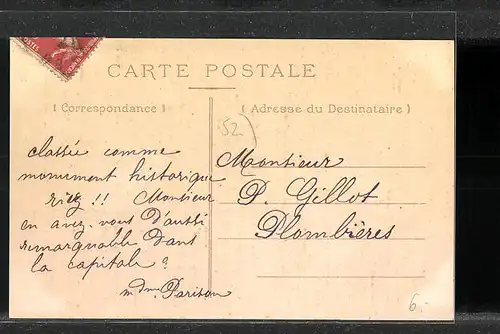 CARTE POSTALE
( Correspondance )
( Adresse du Destinataire )
52)
classée comme
monument historique
riez !! Monsieur
en avez-vous d'aussi
remarquable dans
la capitale ?
mdme Parison
Monsieur
P. Gillot
Plombières
6.-